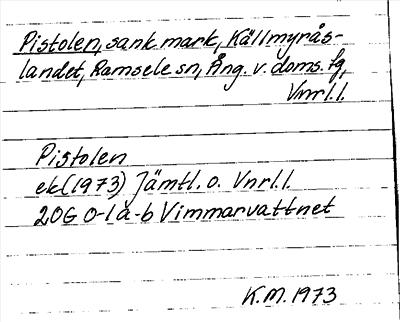 Pistolen, sank mark, Källmyrås-
landet, Ramsele sn, Ång. v. doms. fg,
Vnrl.l.
Pistolen
ek (1973) Jämtl. o. Vnrl.l.
20G 0-1 a-b Vimmarvattnet
K.M. 1973